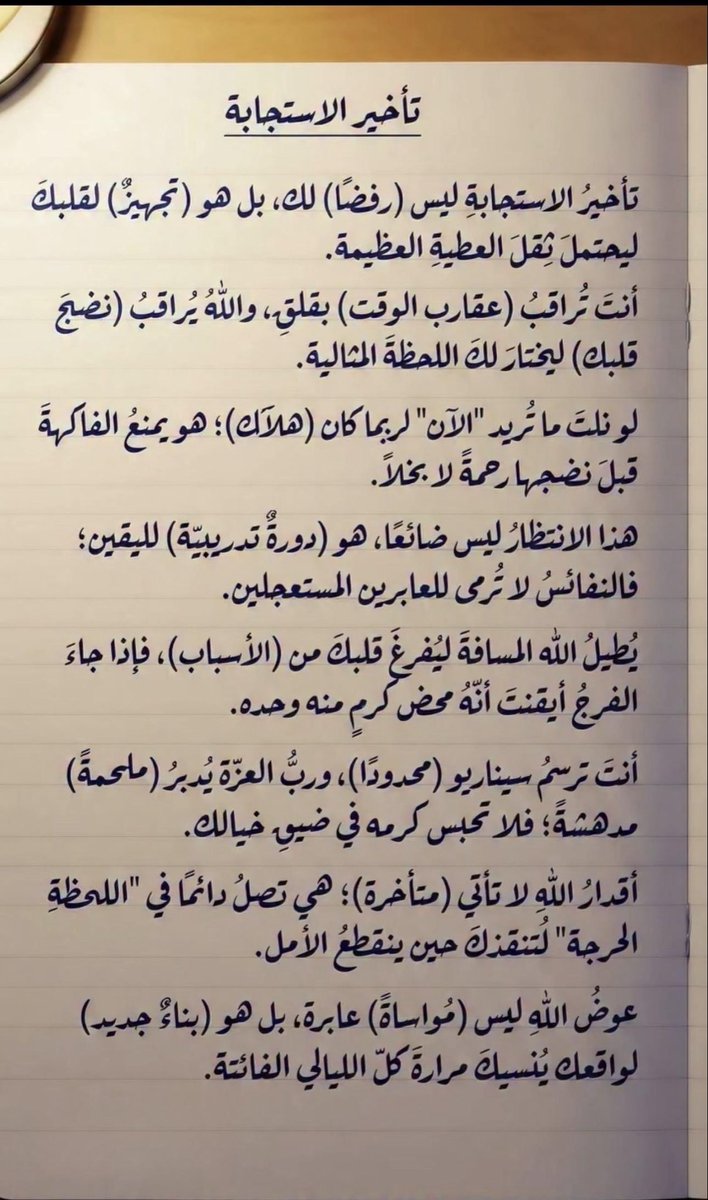 تأخير الاستجابة
تأخيرُ الاستجابةِ ليس (رفضًا) لك، بل هو (تجهيزٌ) لقلبكَ
ليحتملَ ثِقلَ العطيةِ العظيمة.
أنتَ تُراقبُ (عقارب الوقت) بقلقٍ، واللهُ يُراقبُ (نضجَ
قلبك) ليختارَ لكَ اللحظةَ المثالية.
لو نلتَ ما تُريد "الآن" لربما كان (هلاَك)؛ هو يمنعُ الفاكهةَ
قبلَ نضجها رحمةً لا بخلاً.
هذا الانتظارُ ليس ضائعًا، هو (دورةٌ تدريبيّة) لليقين؛
فالنفائسُ لا تُرمى للعابرين المستعجلين.
يُطيلُ الله المسافةَ ليُفرغَ قلبكَ من (الأسباب)، فإذا جاءَ
الفرجُ أيقنتَ أنّهُ محض كرمٍ منه وحده.
أنتَ ترسمُ سيناريو (محدودًا)، وربُّ العزّة يُدبرُ (ملحمةً)
مدهشةً؛ فلا تحبس كرمه في ضيقِ خيالك.
أقدارُ اللهِ لا تأتي (متأخرة)؛ هي تصلُ دائمًا في "اللحظةِ
الحرجة" لُتنقذكَ حين ينقطعُ الأمل.
عوضُ اللهِ ليس (مُواساةً) عابرة، بل هو (بناءٌ جديد)
لواقعك يُنسيكَ مرارةَ كلّ الليالي الفائتة.